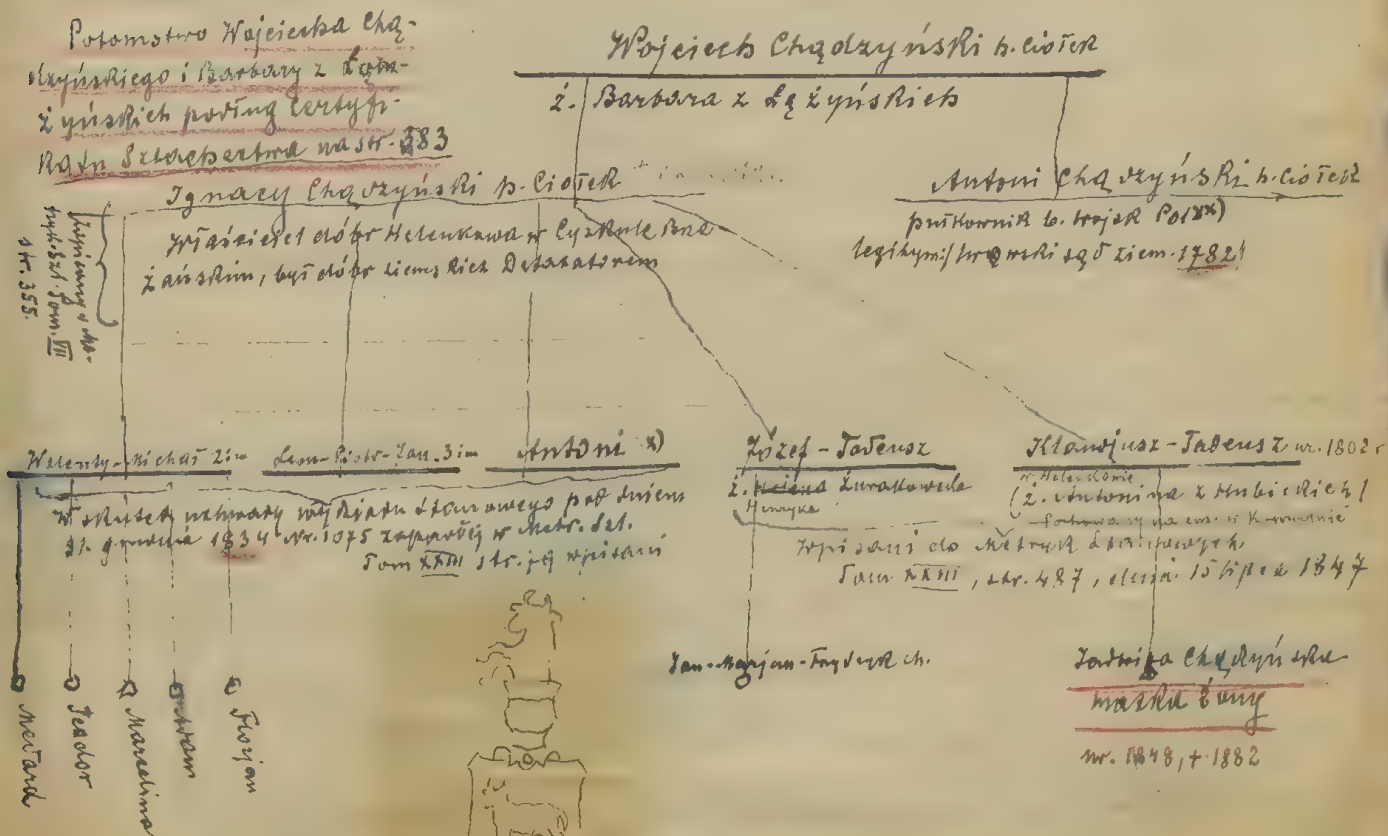 Potomstwo Wojciecha Chą-
dzyńskiego i Barbary z Łę
żyńskich podług Certyfi-
katu Szlachectwa na str. 383
Wojciech Chądzyński h. Ciołek
ż. Barbara z Łążyńskich
Ignacy Chądzyński h. Ciołek
Właściciel dóbr Helenkowa w Cyrkule Brze
żańskim, był dóbr ziemskich
Antoni Chądzyński h. Ciołek
pułkownik b. wojsk Pol xx)
legitym: sąd ziem. 1782
szl. Tom. VII
str. 355.
Walenty-Michał 2im
Leon-Piotr-Jan 3im
Antoni x)
Józef-Tadeusz
ż. Helena Żurakowska
Henryka
Klaudjusz-Tadeusz ur. 1802 r
w Helenkowie
(ż. Antonina z Hubickich)
W skutek uchwały wydziału Stanowego pod dniem
31. grudnia 1834 Nr. 1075 zapadłej w Metr. Szl.
Tom XXIII str. wpisani
Wpisani do Metryk Stanowych
Tom XXIII, str. 487, dnia 15 lipca 1847
Jan-Marjan-Fryderyk ch.
Jadwiga Chądzyńska
matka żony
ur. 1848, + 1882
Medard
Teodor
Marcelina
Florjan